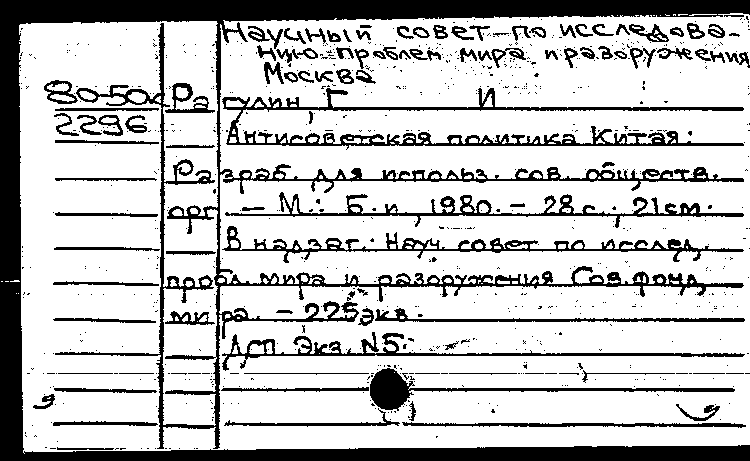 Научный совет по исследова-
нию проблем мира и разоружения
Москва
80-50к Рагулин, Г И
2296
Антисоветская политика Китая:
Разраб. для использ. сов. обществ.
орг. — М.: Б. и, 1980. - 28 с.; 21 см.
В надзаг.: Науч. совет по исслед.
пробл. мира и разоружения Сов. фонд
мира. - 225 экз.
Дсп. Экз. N5.